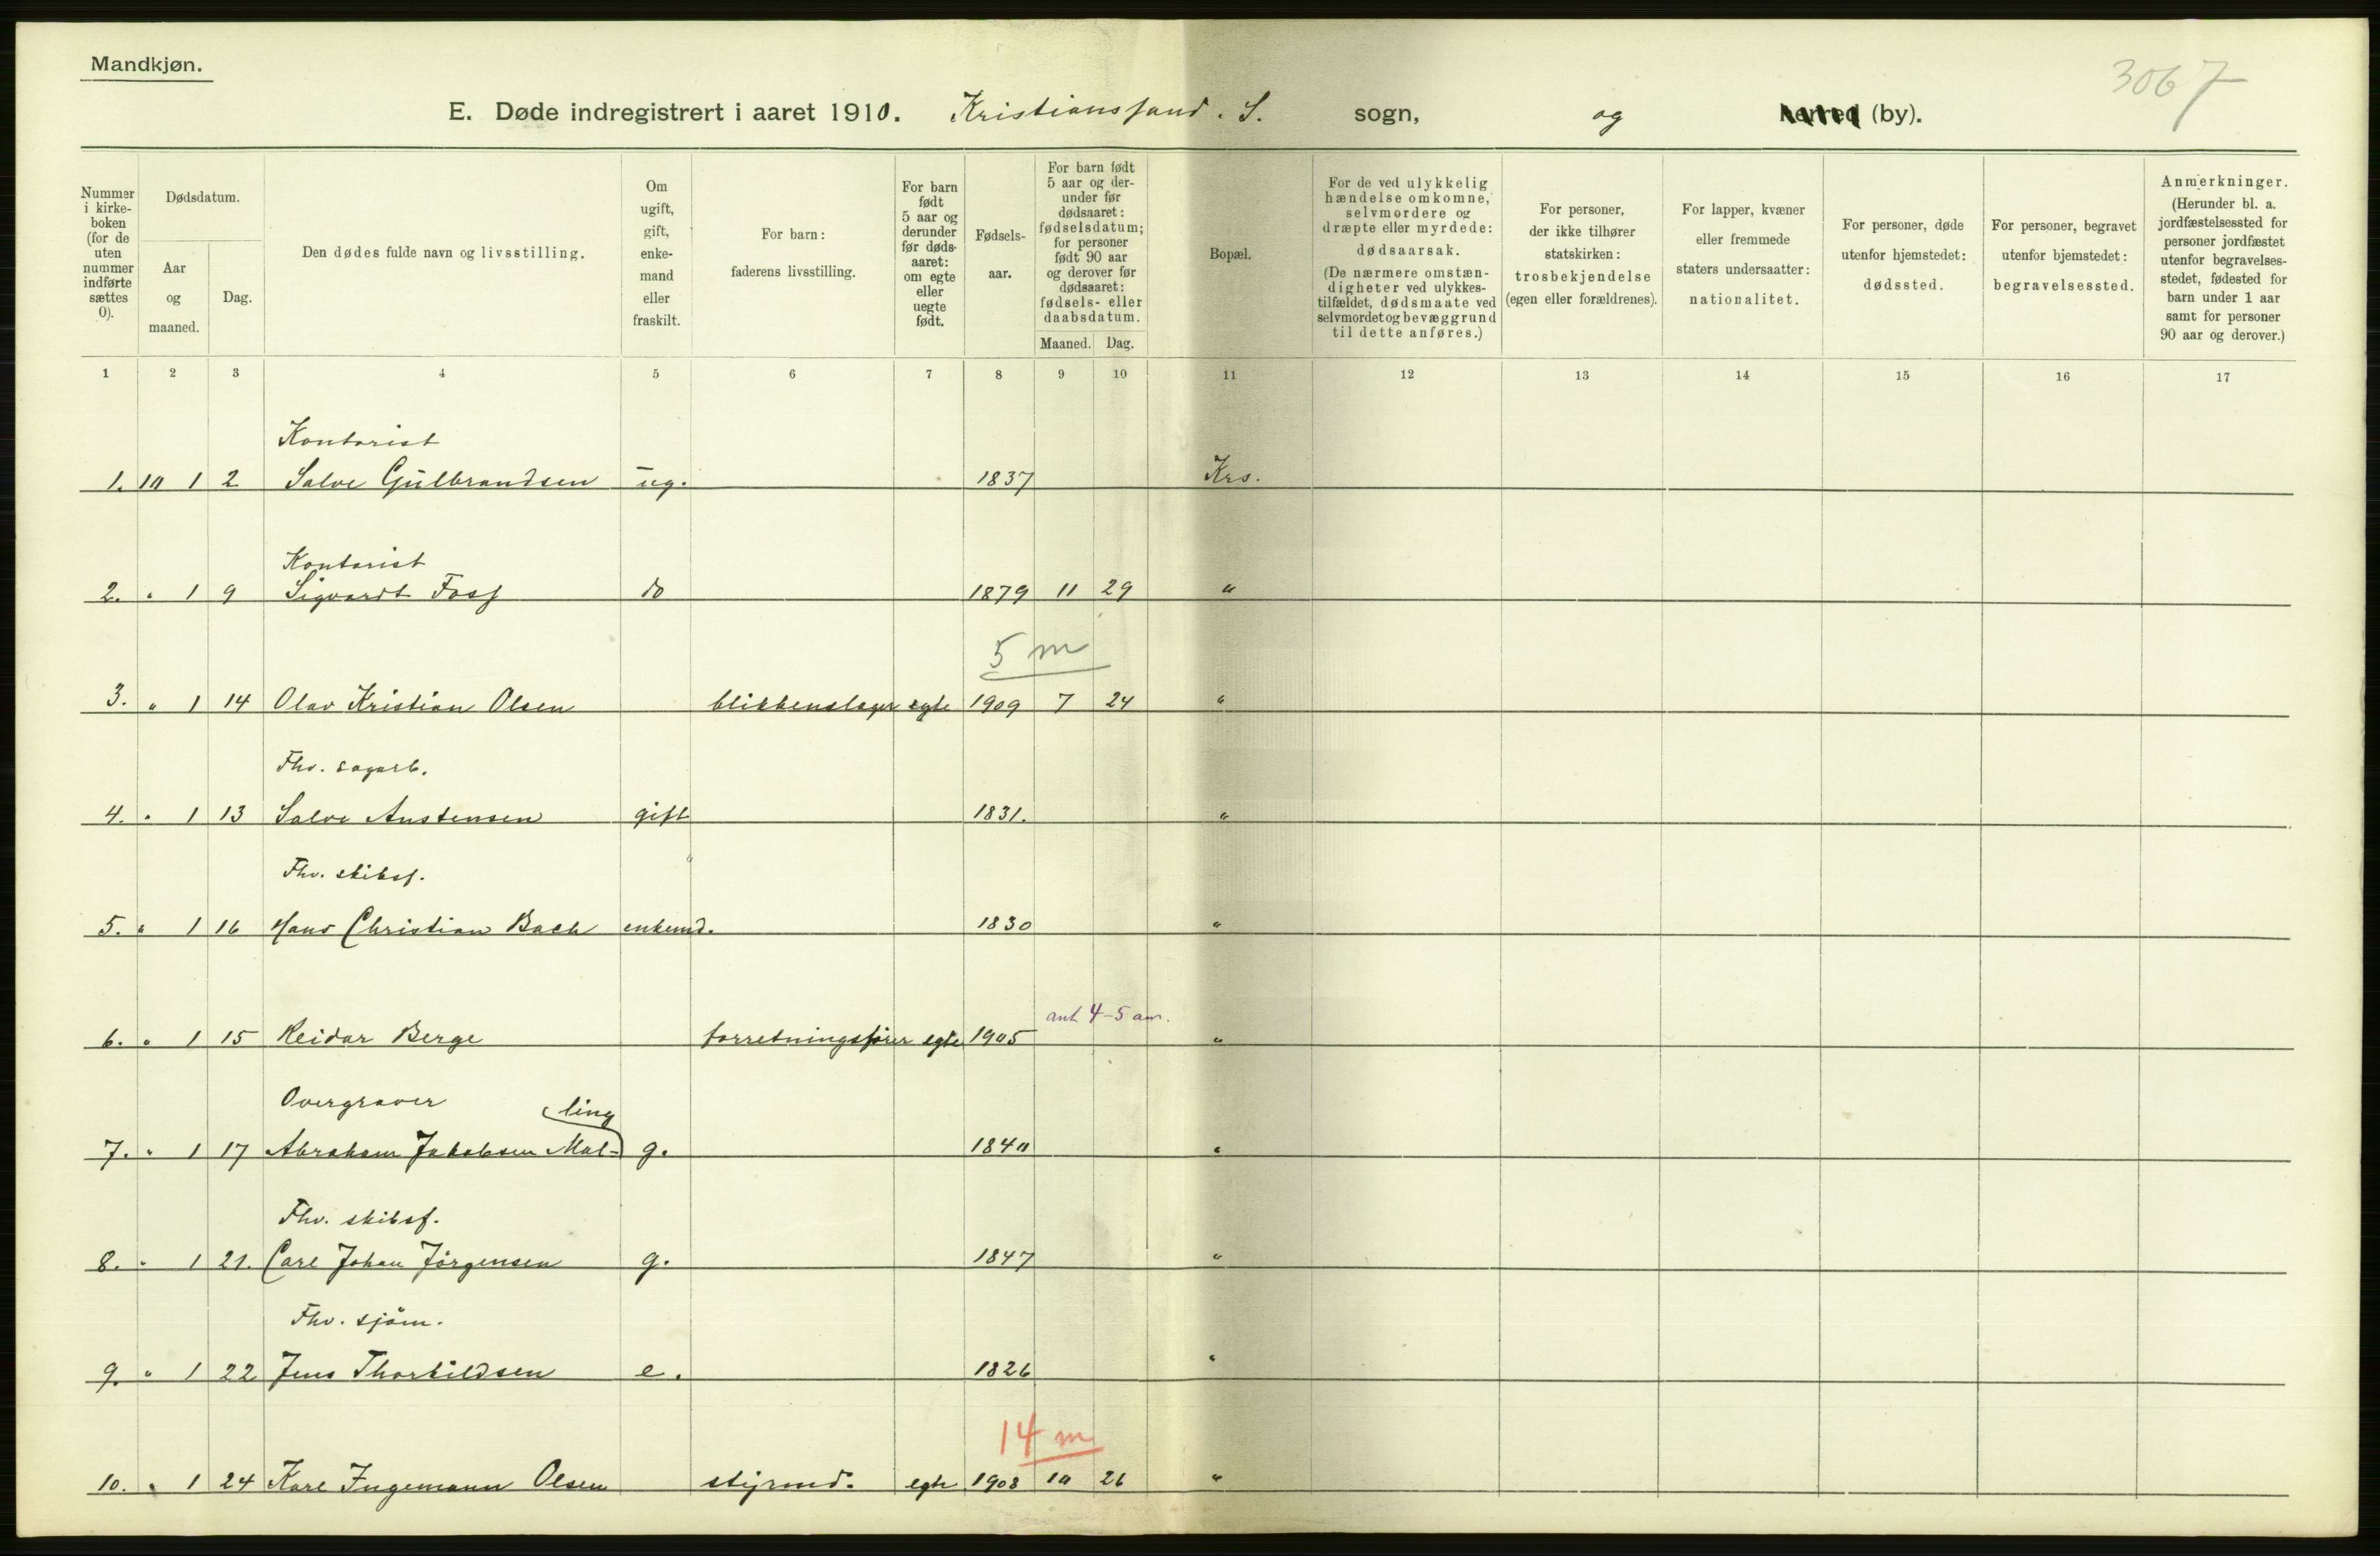 Mandkjøn.
3067
E. Døde indregistrert i aaret 1910. Kristianssand. S. sogn, og herred (by).
Nummer i kirkeboken (for de uten nummer indførte sættes 0).
Dødsdatum.
Aar og maaned.
Dag.
Den dødes fulde navn og livsstilling.
Om ugift, gift, enkemand eller fraskilt.
For barn: faderens livsstilling.
For barn født 5 aar og derunder før dødsaaret: om egte eller uegte født.
Fødselsaar.
For barn født 5 aar og derunder før dødsaaret: fødselsdatum; for personer født 90 aar og derover før dødsaaret: fødsels- eller daabsdatum.
Maaned. Dag.
Bopæl.
For de ved ulykkelig hændelse omkomne, selvmordere og dræpte eller myrdede: dødsaarsak. (De nærmere omstændigheter ved ulykkestilfældet, dødsmaate ved selvmordet og bevæggrund til dette anføres.)
For personer, der ikke tilhører statskirken: trosbekjendelse (egen eller forældrenes).
For lapper, kvæner eller fremmede staters undersaatter: nationalitet.
For personer, døde utenfor hjemstedet: dødssted.
For personer, begravet utenfor bjemstedet: begravelsessted.
Anmerkninger. (Herunder bl. a. jordfæstelsessted for personer jordfæstet utenfor begravelsesstedet, fødested for barn under 1 aar samt for personer 90 aar og derover.)
1 2 3 4 5 6 7 8 9 10 11 12 13 14 15 16 17
Kontorist
1. 10 1 2 Salve Gulbrandsen ug. 1837 Krs.
Kontorist
2. " 1 9 Sigvardt Foss do 1879 11 29 "
5 m
3. " 1 14 Olav Kristian Olsen blikkenslager egte 1909 7 24 "
Fhv. sagarb.
4. " 1 13 Salve Austensen gift 1831. "
Fhv. skibsf.
5. " 1 16 Hans Christian Bach enkemd. 1830 "
ant 4-5 aar.
6. " 1 15 Reidar Berge forretningsfører egte 1905 "
Overgraver
ling
7. " 1 17 Abraham Jakobsen Mol- g. 1840 "
Fhv. skibsf.
8. " 1 21. Carl Johan Jörgensen g. 1847 "
Fhv. sjöm.
9. " 1 22 Jens Thorkildsen e. 1826 "
14 m
10. " 1 24 Kare Ingemann Olsen styrmd. egte 1908 10 26 "